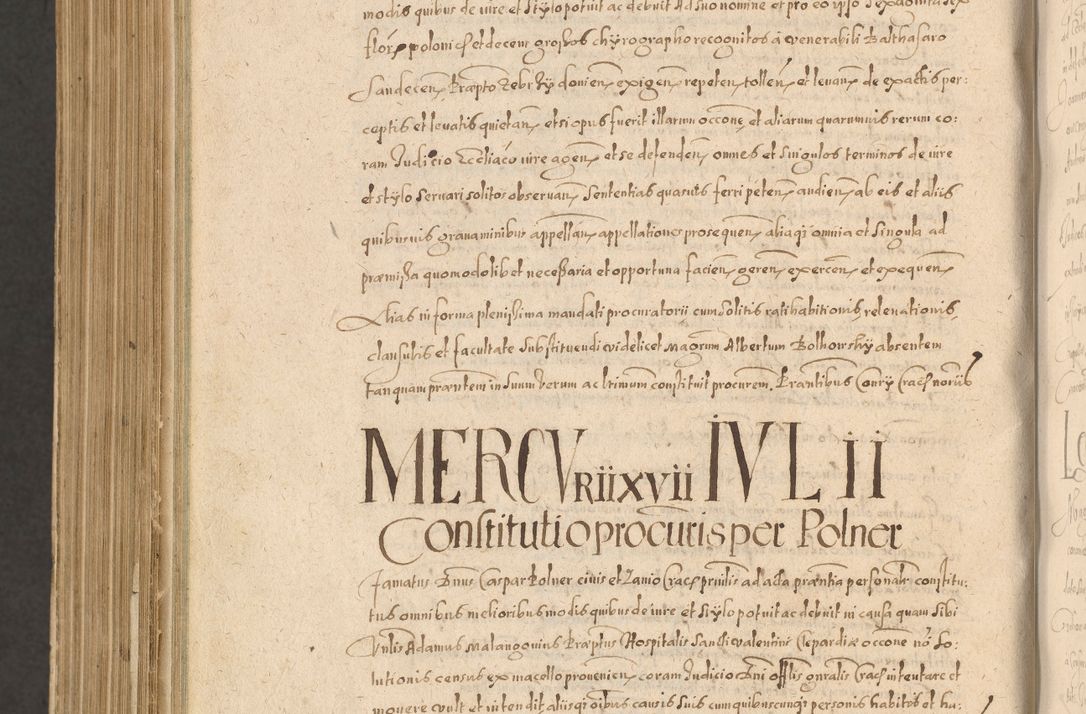 modis quibus de iure et stylo potuit ac debuit Ad suo nomine et pro eo ipso
flor polonic et decem grossos chyrographo recognitos á venerabili Balthasaro
Sandecen Præpto Zebrzky donien exigen repeten tollen et levan de exactis per:
ceptis et levatis quietan et si opus fuerit illarum occone et aliarum quarumvis rerum co:
ram Judicio iure agen et se defenden omnes et singulos terminos de iure
et stylo servari solitos observan Sententias quasvis ferri peten audien ab eis et aliis
quibusvis gravaminibus appellan appellationes prosequen aliaq omnia et singula ad
præmissa quomodolibet necessaria et opportuna facien geren exercen et exequen
Alias in forma plenissima mandati procuratorii cum solitis ratihabitionis relevationis,
clausulis et facultate substituendi videlicet Magrum Albertum Bolhowsky absentem
tanquam præntem in suum verum ac ltimum constituit procurem. Præntibus Conry Crac norus
MERCVRii xvii IVLii
Constitutio procuris per Polner
Famatus Dnus Caspar Polner civis et Lanio Crac prnlis ad acta præntia personalr constitu:
tus omnibus melioribus modis quibus de iure et stylo potuit ac debuit in causa quam sibi
Vnlis Adamus Malangovius Præptus Hospitalis Sancti Valentini Clepardiæ occone no So:
lutionis census ex macello provenien coram Judicio Dni offlis gnralis Crac intentare et
movere vult et intendit aliisq oibus causis suis cum quibuscunq personis habitis et ha: